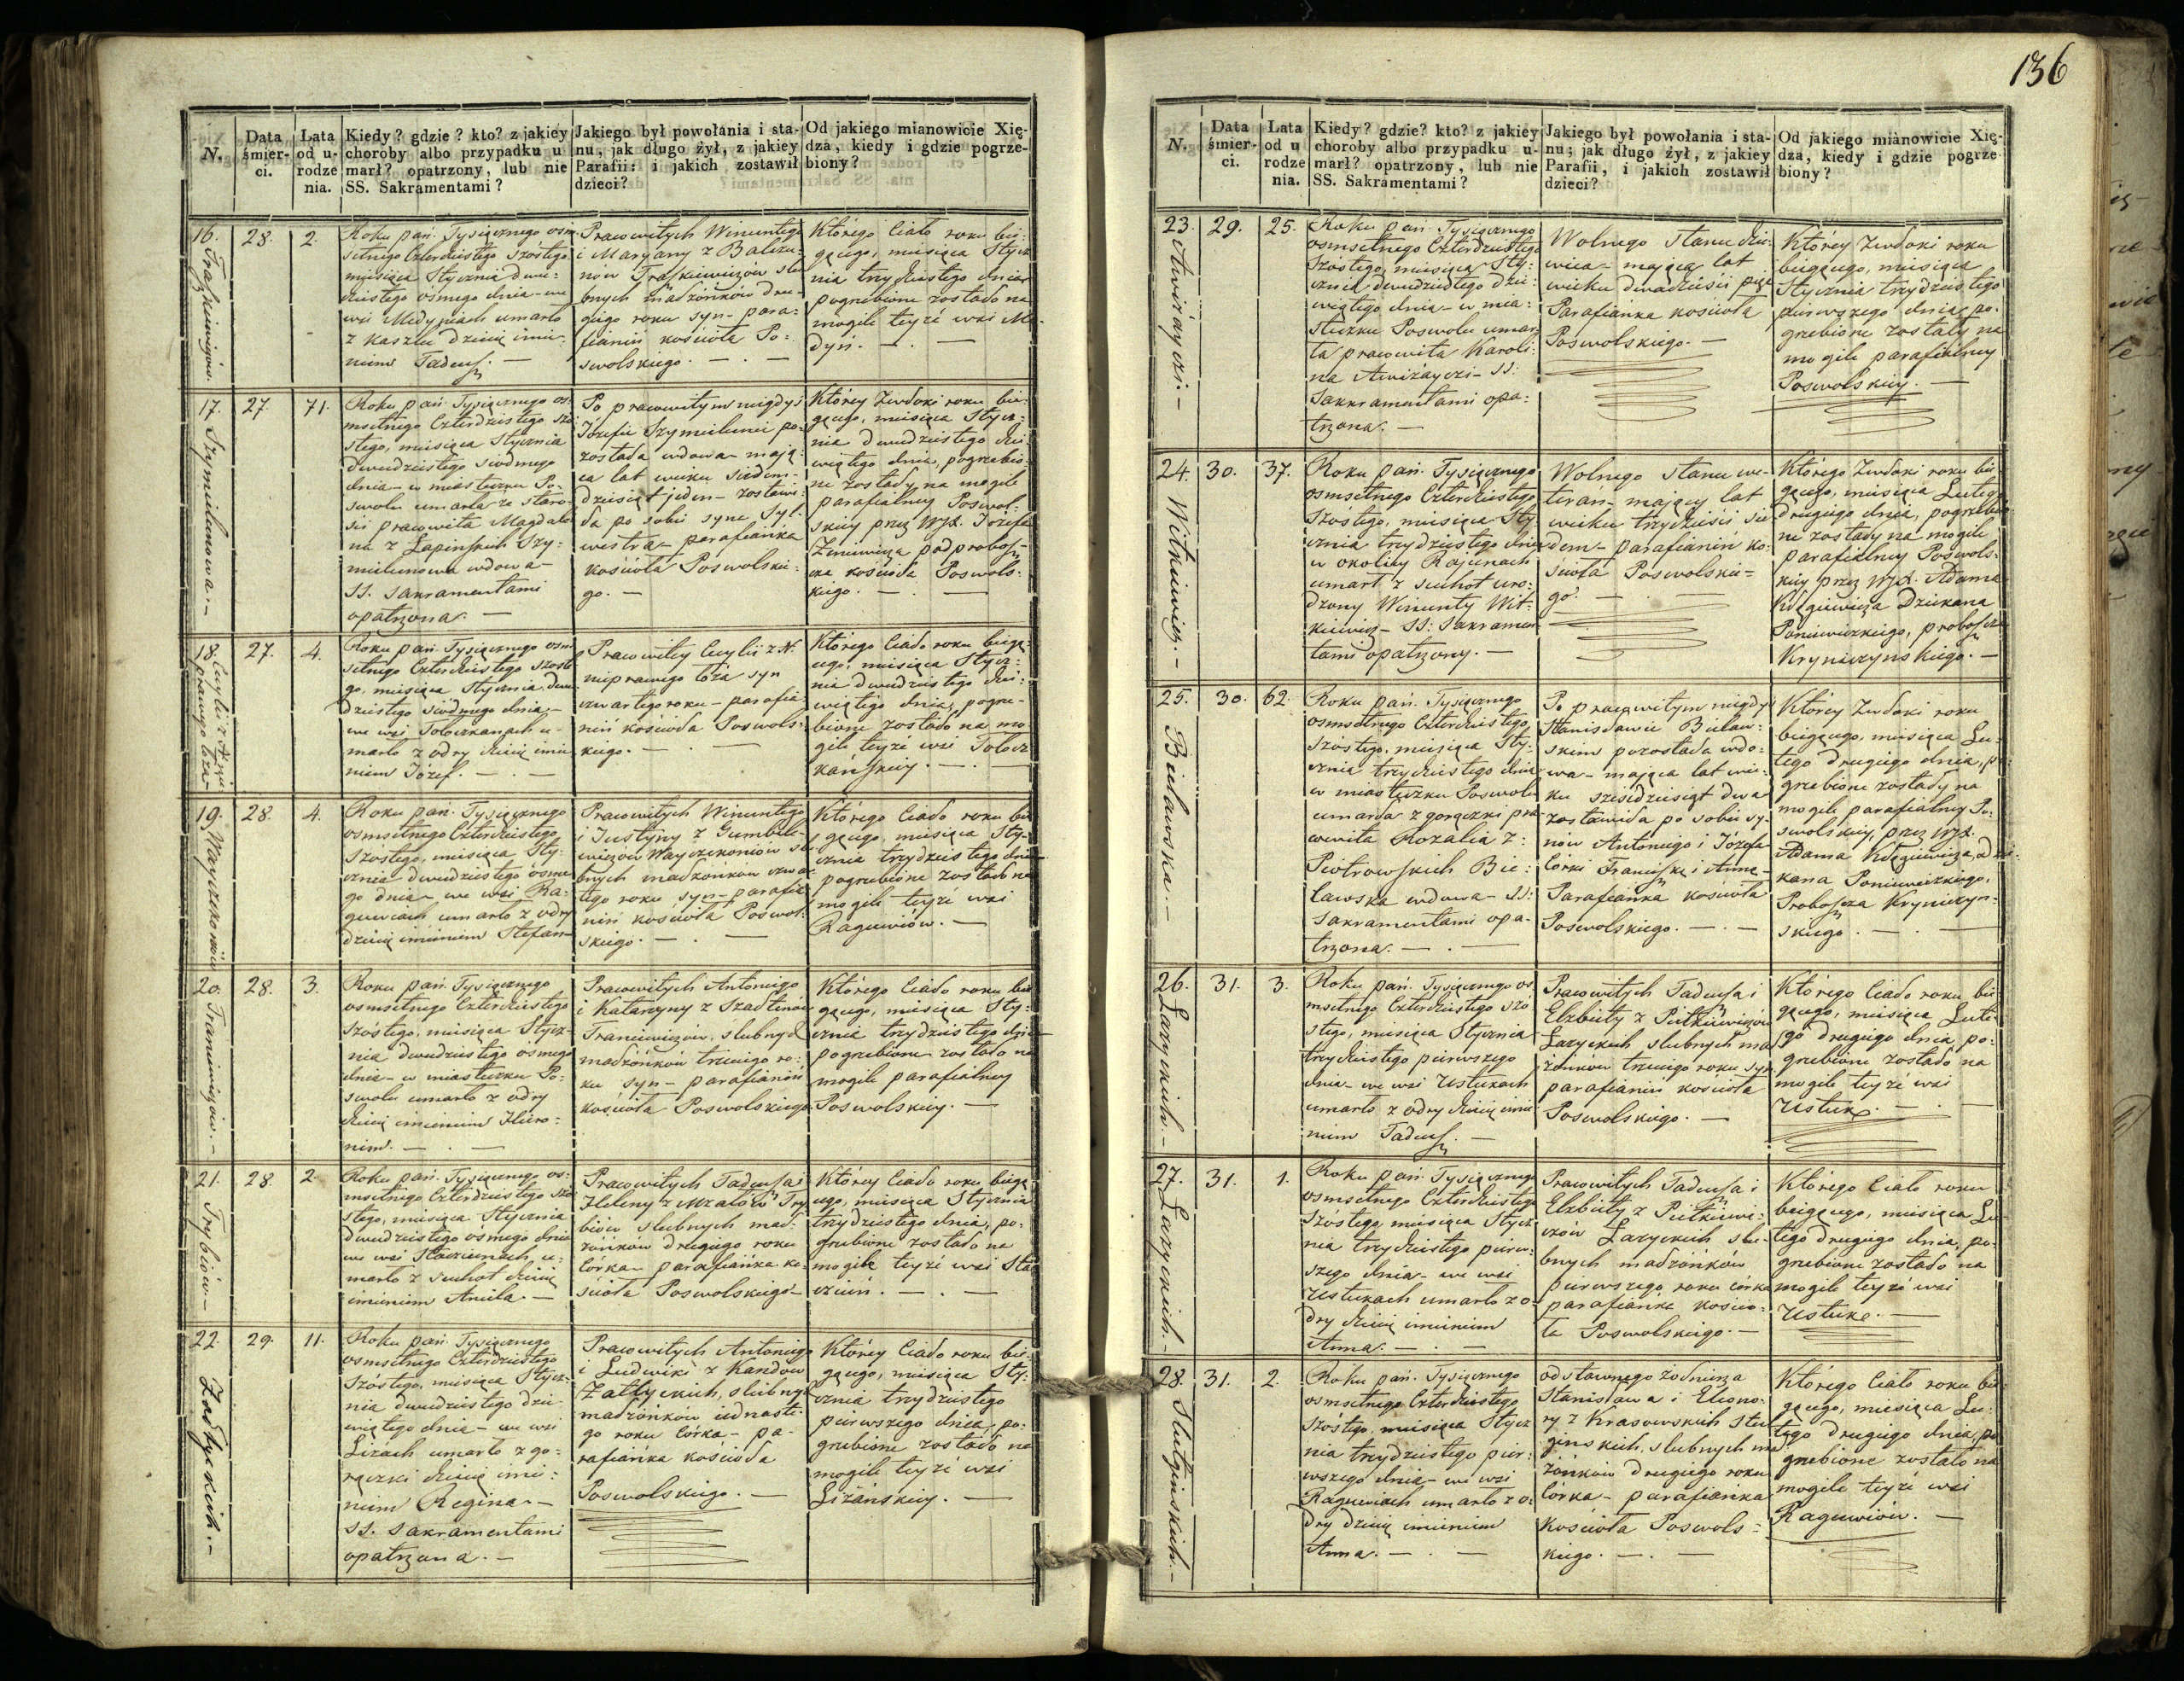 136
N.
Data śmierci.
Lata od urodzenia.
Kiedy? gdzie? kto? z jakiey
choroby albo przypadku u
marł? opatrzony, lub nie
SS. Sakramentami?
Jakiego był powołania i sta-
nu, jak długo żył, z jakiey
Parafii: i jakich zostawił
dzieci?
Od jakiego mianowicie Xię-
dza, kiedy i gdzie pogrze-
biony?
16.
28.
2.
Roku pań. Tysiącznego osm
setnego Czterdziestego szóstego
miesiąca Stycznia dwu-
dziestego ósmego dnia - we
wsi Medyniach umarło
z kaszlu dziecię imie-
niem Tadeusz. —
Prawowitych Wincentego
i Maryanny z Balczu-
nów Traszkiewiczów slu-
bnych małżonków dru-
giego roku syn - para-
fianin kościoła Po-
swolskiego. —
Którego Ciało roku bie-
gącego, miesiąca Stycz
nia trzydziestego dnia
pogrzebione zostało na
mogile teyże wsi Me-
dyń. —
17.
Szymielunowa. —
27.
71.
Roku pań. Tysiącznego os-
msetnego Czterdziestego szó
stego, miesiąca Stycznia
dwudziestego siodmego
dnia - w miasteczku Po-
swolu umarła ze staro-
sci prawowita Magdale
na z Łapinskich Szy-
mielunowa wdowa -
SS. Sakramentami
opatrzona. —
Po prawowitym niegdyś
Józefie Szymielunie po-
została wdowa - mają-
ca lat wieku siedem-
dziesiąt jeden - zostawi-
ła po sobie syna Syl-
westra - parafianka
kościoła Poswolskie-
go. —
Którey Zwłoki roku bie-
gącego, miesiąca Stycz-
nia dwudziestego dzie-
wiątego dnia, pogrzebio-
ne zostały na mogile
parafialney Poswol-
skiey przez WJX. Józefa
podprobosz-
cza kościoła Poswols-
kiego. —
18.
27.
4.
Roku pań. Tysiącznego osm
setnego Czterdziestego szóste
go, miesiąca Stycznia dwu-
dziestego siódmego dnia -
we wsi Tołoczkanach u-
marło z odry dziecię imie
niem Józef. —
Prawowitey Cecylii z N.
nieprawego łoża syn
czwartego roku - parafia
nin kościoła Poswols-
kiego. —
Którego Ciało roku biegą-
cego, miesiąca Stycz-
nia dwudziestego dzie-
wiątego dnia, pogrze-
bione zostało na mo
gile teyże wsi Tołocz
kańskiey. —
19.
28.
4.
Roku pań. Tysiącznego
osmsetnego Czterdziestego
szóstego, miesiąca Sty-
cznia - dwudziestego ósme
go dnia - we wsi Ra-
guwcach umarło z odry
dziecię imieniem Stefan
Prawowitych Wincentego
i Justyny z Gumbele-
wiczów Wayczekoniów slu-
bnych małżonków czwar
tego roku syn - parafia
nin kościoła Poswol-
skiego. —
Którego Ciało roku bie
gącego, miesiąca Sty-
cznia trzydziestego dnia
pogrzebione zostało na
mogile teyże wsi
Raguwiów. —
20.
Franciewiczów. —
28.
3.
Roku pań. Tysiącznego
osmsetnego Czterdziestego
szóstego, miesiąca Stycz-
nia dwudziestego ósmego
dnia - w miasteczku Po-
swolu umarło z odry
dziecię imieniem Hiero-
nim. —
Prawowitych Antoniego
i Katarzyny z Szadtinów
Franciewiczów, slubnych
małżonków trzeciego ro-
ku syn - parafianin
kościoła Poswolskiego
Którego Ciało roku bie
gącego, miesiąca Sty-
cznia trzydziestego dnia
pogrzebione zostało na
mogile parafialney
Poswolskiey. —
21.
Trybiów. —
28.
2.
Roku pań. Tysiącznego os-
msetnego Czterdziestego szó
stego, miesiąca Stycznia
dwudziestego ósmego dnia
we wsi Staczunach u-
marło z suchot dziecię
imieniem Aniela. —
Prawowitych Tadeusza i
Heleny z Mzalów Try
biów slubnych mał-
żonków drugiego roku
córka - parafianka ko-
ścioła Poswolskiego
Którey Ciało roku biegą
cego, miesiąca Stycznia
trzydziestego dnia, po-
grzebione zostało na
mogile teyże wsi Sta
czuń. —
22.
Załtyckich. —
29.
11.
Roku pań. Tysiącznego
osmsetnego Czterdziestego
szóstego, miesiąca Stycz-
nia dwudziestego dzie-
wiątego dnia - we wsi
Liżach umarło z go-
rączki dziecię imie-
niem Regina. —
SS. Sakramentami
opatrzona. —
Prawowitych Antoniego
i Ludwiki z Kandów
Załtyckich, slubnych
małżonków iednaste-
go roku córka - pa-
rafianka kościoła
Poswolskiego. —
Którey Ciało roku bie-
gącego, miesiąca Sty-
cznia trzydziestego
pierwszego dnia, po-
grzebione zostało na
mogile teyże wsi
Liżańskiey. —
N.
Data śmierci.
Lata od urodzenia.
Kiedy? gdzie? kto? z jakiey
choroby albo przypadku u-
marł? opatrzony, lub nie
SS. Sakramentami?
Jakiego był powołania i sta-
nu; jak długo żył, z jakiey
Parafii, i jakich zostawił
dzieci?
Od jakiego mianowicie Xię-
dza, kiedy i gdzie pogrze-
biony?
23.
Awiżayczi. —
29.
25.
Roku pań. Tysiącznego
osmsetnego Czterdziestego
szóstego, miesiąca Sty-
cznia dwudziestego dzie-
wiątego dnia - w mia-
steczku Poswolu umar
ła prawowita Karoli-
na Awiżayczi - SS.
Sakramentami opa-
trzona. —
Wolnego stanu dzie-
wica - mająca lat
wieku dwadzieścia pięć
Parafianka kościoła
Poswolskiego. —
Którey Zwłoki roku
biegącego, miesiąca
Stycznia trzydziestego
pierwszego dnia, po-
grzebione zostały na
mogile parafialney
Poswolskiey. —
24.
Witkiewicz. —
30.
37.
Roku pań. Tysiącznego
osmsetnego Czterdziestego
szóstego, miesiąca Sty-
cznia trzydziestego dnia
w okolicy Rajunach
umarł z suchot uro-
dzony Wincenty Wit-
kiewicz - SS. Sakramen
tami opatrzony. —
Wolnego stanu we-
teran - mający lat
wieku trzydzieści sie
dem - parafianin ko-
ścioła Poswolskie-
go. —
Którego Zwłoki roku bie
gącego, miesiąca Lutego
drugiego dnia, pogrzebio
ne zostały na mogile
parafialney Poswols-
kiey przez WJX. Adama
Kłągiewicza Dziekana
Poniewiezkiego, proboszcza
Kryniczynskiego. —
25.
Bielawska. —
30.
62.
Roku pań. Tysiącznego
osmsetnego Czterdziestego
szóstego, miesiąca Sty-
cznia trzydziestego dnia
w miasteczku Poswolu
umarła z gorączki pra
wowita Rozalia z
Piotrowskich Bie-
lawska wdowa - SS.
Sakramentami opa-
trzona. —
Po prawowitym niegdyś
Stanisławie Bielaw-
skim pozostała wdo-
wa - mająca lat wie-
ku sześćdziesiąt dwa
zostawiła po sobie sy-
nów Antoniego i Józefa
Córki Franciszkę i Annę
Parafianka kościoła
Poswolskiego. —
Którey Zwłoki roku
biegącego, miesiąca Lu-
tego drugiego dnia, po
grzebione zostały na
mogile parafialney Po-
swolskiey, przez WJX.
Adama Kłągiewicza, dzie-
kana Poniewiezkiego,
Proboszcza Kryniczyn-
skiego. —
26.
31.
3.
Roku pań. Tysiącznego os
msetnego Czterdziestego szó
stego, miesiąca Stycznia
trzydziestego pierwszego
dnia - we wsi Ustukach
umarło z odry dziecię imie
niem Tadeusz. —
Prawowitych Tadeusza i
Elżbiety z Pietkiewiczów
Łazyckich slubnych mał
żonków trzeciego roku syn
parafianin kościoła
Poswolskiego. —
Którego Ciało roku bie
gącego, miesiąca Lute-
go drugiego dnia, po-
grzebione zostało na
mogile teyże wsi
Ustuk. —
27.
Łazyckich. —
31.
1.
Roku pań. Tysiącznego
osmsetnego Czterdziestego
szóstego, miesiąca Stycz
nia trzydziestego pierw-
szego dnia - we wsi
Ustukach umarło z o-
dry dziecię imieniem
Anna. —
Prawowitych Tadeusza i
Elżbiety z Pietkiewi-
czów Łazyckich slu-
bnych małżonków
pierwszego roku córka
parafianka kościo-
ła Poswolskiego. —
Którego Ciało roku
biegącego, miesiąca Lu-
tego drugiego dnia, po-
grzebione zostało na
mogile teyże wsi
Ustuk. —
28.
31.
2.
Roku pań. Tysiącznego
osmsetnego Czterdziestego
szóstego, miesiąca Stycz
nia trzydziestego pier-
wszego dnia - we wsi
Raguwiach umarło z o-
dry dziecię imieniem
Anna. —
odstawnego żołnierza
Stanisława i Eleono-
ry z Krasowskich Stul
ginskich, slubnych mał
żonków drugiego roku
Córka - parafianka
Kościoła Poswols-
kiego. —
Którego Ciało roku bie
gącego, miesiąca Lu-
tego drugiego dnia, po
grzebione zostało na
mogile teyże wsi
Raguwiów. —